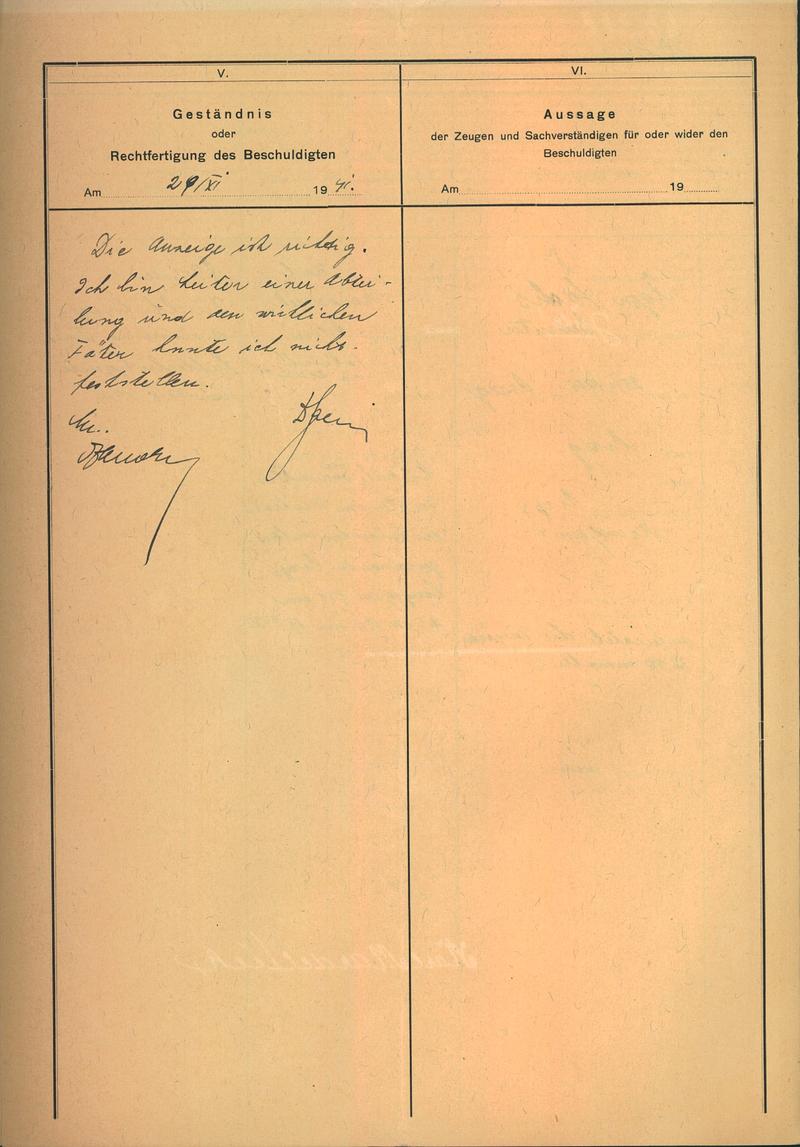 V.
Geständnis
oder
Rechtfertigung des Beschuldigten
Am 29/XI 1941.
Die Anzeige ist richtig.
Ich bin Leiter einer Abtei-
lung und den wirklichen
Täter konnte ich nicht
feststellen.
VI.
Aussage
der Zeugen und Sachverständigen für oder wider den
Beschuldigten
Am 19